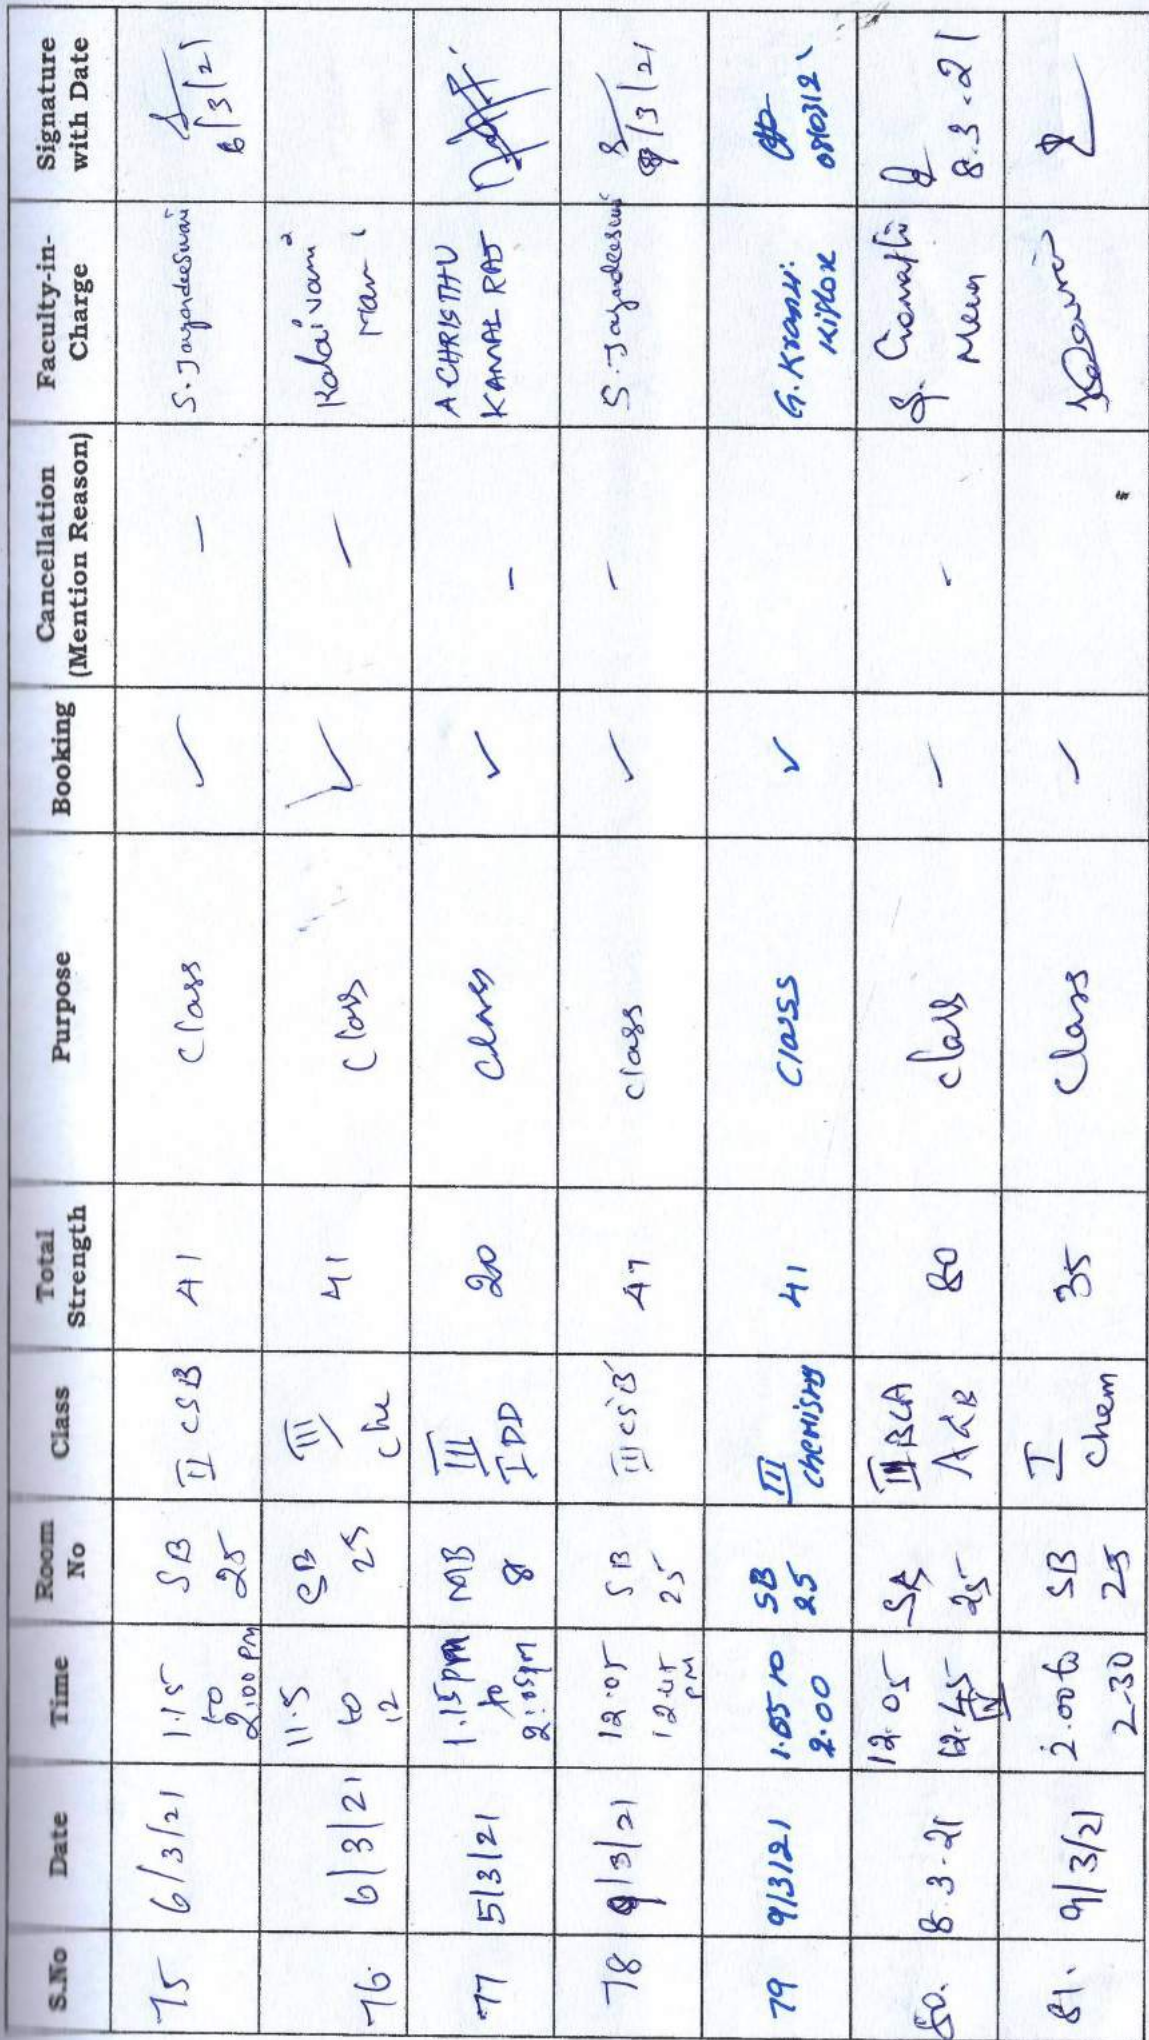 S.No Date Time Room No Class Total Strength Purpose Booking Cancellation (Mention Reason) Faculty-in-Charge Signature with Date
75 6/3/21 1.15 to 2.00 PM SB 25 II CSB 41 Class ✓ – S. Jayandeeswari 6/3/21
76. 6/3/21 11.5 to 12 SB 25 III Che 41 Class ✓ – Kalaivani Mani
77 5/3/21 1.15pm to 2.05pm MB 8 III IDD 20 Class ✓ – A CHRISTHU KAMAL RAJ
78 9/3/21 12.05 12.45 PM SB 25 III CS'B' 47 class ✓ – S. Jayandeeswari /3/21
79 9/3/21 1.05 to 2.00 SB 25 III chemistry 41 Class ✓ G.
80. 8.3.21 12.05 12.45 25 BCA A&B 80 class – – 8.3.21
81. 9/3/21 2.00 to 2-30 SB 25 I Chem 35 Class –